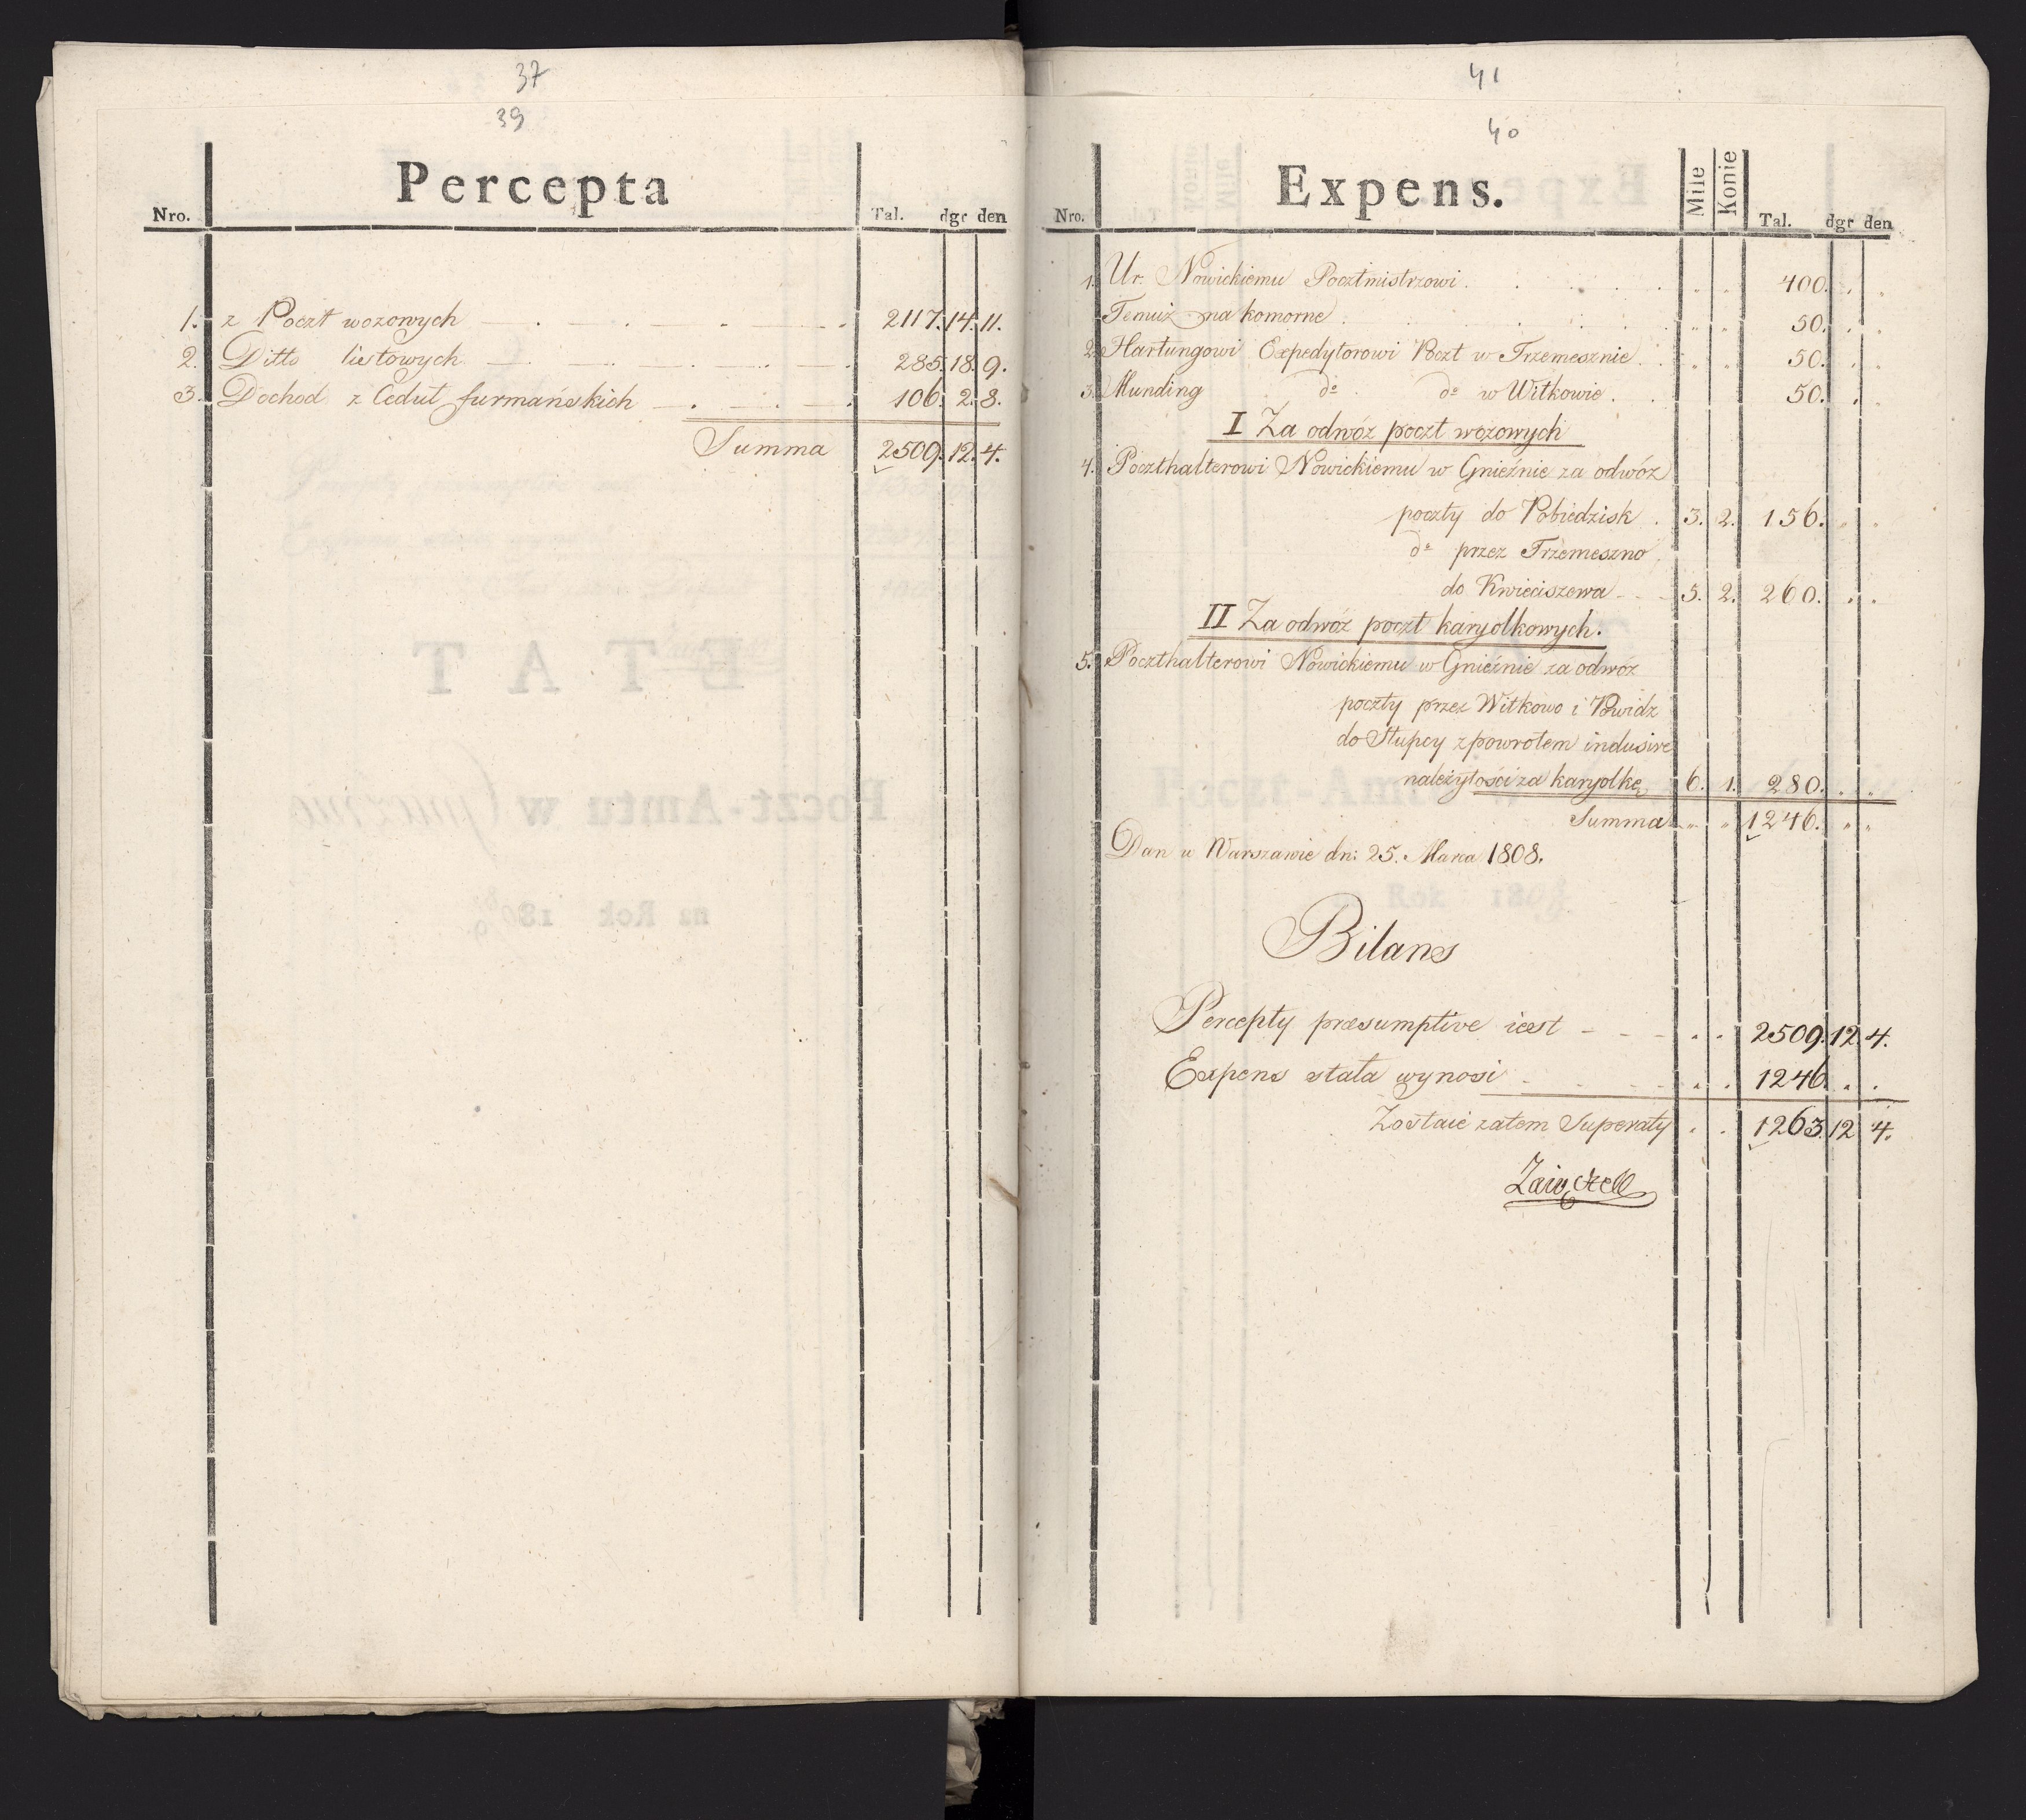 37
39
Percepta
Nro. Tal. dgr den
1. z Poczt wozowych 2117. 14. 11.
2. Ditto listowych 285. 18. 9.
3. Dochod z Ceduł furmańskich 106. 2. 8.
Summa 2509. 12. 4.
41
40
Expens.
Nro. Mile Konie Tal. dgr den
1. Ur. Nowickiemu Pocztmistrzowi 400.
Temuż na komorne 50.
2. Hartungowi Expedytorowi Poczt w Trzemesznie 50.
3. Munding do do w Witkowie 50.
I Za odwóz poczt wozowych
4. Poczthalterowi Nowickiemu w Gnieźnie za odwóz
poczty do Pobiedzisk 3. 2. 156.
do przez Trzemeszno
do Kwieciszewa 5. 2. 260.
II Za odwóz poczt karyolkowych.
5. Poczthalterowi Nowickiemu w Gnieźnie za odwóz
poczty przez Witkowo i Powidz
do Słupcy z powrotem inclusive
należytości za karyolkę 6. 1. 280.
Summa 1246.
Dan w Warszawie dn: 25. Marca 1808.
Bilans
Percepty præsumptive iest 2509. 12. 4.
Expens stała wynosi 1246.
Zostaie zatem Superaty 1263. 12. 4.